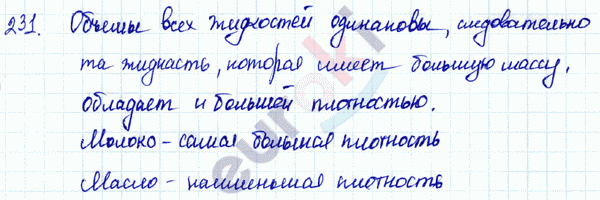 231. Объемы всех жидкостей одинаковы, следовательно
та жидкость, которая имеет большую массу,
обладает и большей плотностью.
Молоко - самая большая плотность
Масло - наименьшая плотность
euroki